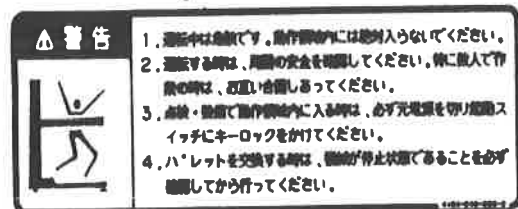 ⚠警告
1.運転中は危険です。動作領域内には絶対入らないでください。
2.運転する時は、周囲の安全を確認してください。特に数人で作
業の時は、お互い合図しあってください。
3.点検・整備で動作領域内に入る時は、必ず元電源を切り起動ス
イッチにキーロックをかけてください。
4.パレットを交換する時は、機械が停止状態であることを必ず
確認してから行ってください。